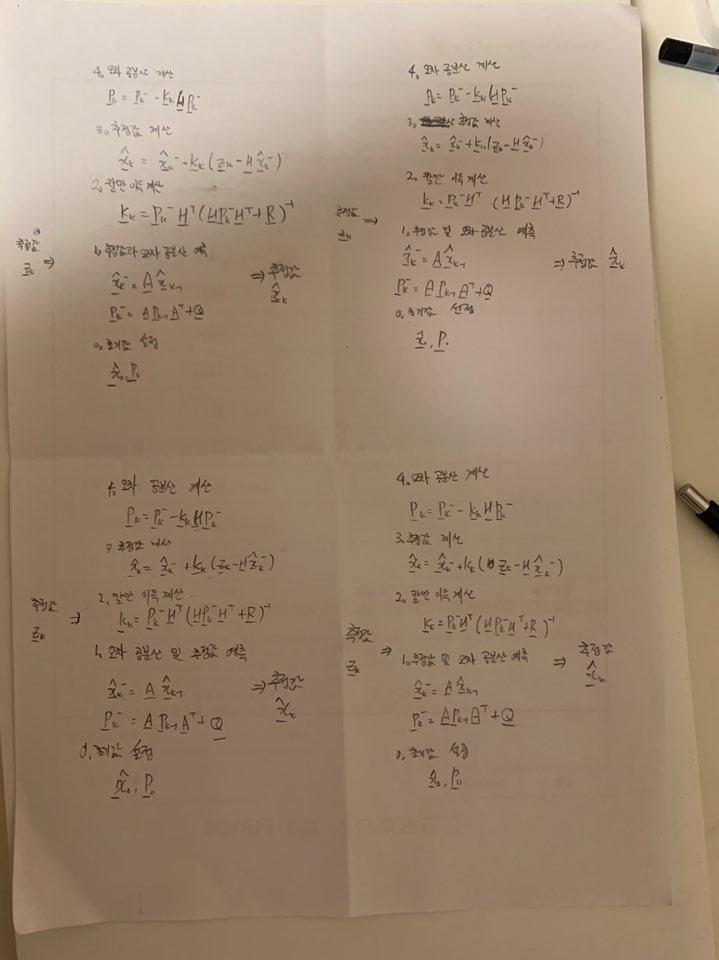 4. 오차 공분산 계산
P̲ₖ = P̲ₖ⁻ - K̲ₖ H̲ P̲ₖ⁻
3. 추정값 계산
x̲̂ₖ = x̲̂ₖ⁻ + K̲ₖ (z̲ₖ - H̲ x̲̂ₖ⁻)
2. 칼만 이득 계산
K̲ₖ = P̲ₖ⁻ H̲ᵀ (H̲ P̲ₖ⁻ H̲ᵀ + R̲)⁻¹
측정값
z̲ₖ ⇒
1. 추정값과 오차 공분산 예측
x̲̂ₖ⁻ = A̲ x̲̂ₖ₋₁
⇒ 추정값
x̲̂ₖ
P̲ₖ⁻ = A̲ P̲ₖ₋₁ A̲ᵀ + Q̲
0. 초기값 설정
x̲̂₀, P̲₀
4. 오차 공분산 계산
P̲ₖ = P̲ₖ⁻ - K̲ₖ H̲ P̲ₖ⁻
3. 추정값 계산
x̲̂ₖ = x̲̂ₖ⁻ + K̲ₖ (z̲ₖ - H̲ x̲̂ₖ⁻)
2. 칼만 이득 계산
K̲ₖ = P̲ₖ⁻ H̲ᵀ (H̲ P̲ₖ⁻ H̲ᵀ + R̲)⁻¹
측정값 ⇒
z̲ₖ
1. 추정값 및 오차 공분산 예측
x̲̂ₖ⁻ = A̲ x̲̂ₖ₋₁
⇒ 추정값 x̲̂ₖ
P̲ₖ⁻ = A̲ P̲ₖ₋₁ A̲ᵀ + Q̲
0. 초기값 선정
x̲̂₀, P̲₀
4. 오차 공분산 계산
P̲ₖ = P̲ₖ⁻ - K̲ₖ H̲ P̲ₖ⁻
3. 추정값 계산
x̲̂ₖ = x̲̂ₖ⁻ + K̲ₖ (z̲ₖ - H̲ x̲̂ₖ⁻)
측정값
z̲ₖ ⇒
2. 칼만 이득 계산
K̲ₖ = P̲ₖ⁻ H̲ᵀ (H̲ P̲ₖ⁻ H̲ᵀ + R̲)⁻¹
1. 오차 공분산 및 추정값 예측
x̲̂ₖ⁻ = A̲ x̲̂ₖ₋₁
⇒ 추정값
x̲̂ₖ
P̲ₖ⁻ = A̲ P̲ₖ₋₁ A̲ᵀ + Q̲
0. 초기값 설정
x̲̂₀, P̲₀
4. 오차 공분산 계산
P̲ₖ = P̲ₖ⁻ - K̲ₖ H̲ P̲ₖ⁻
3. 추정값 계산
x̲̂ₖ = x̲̂ₖ⁻ + K̲ₖ (z̲ₖ - H̲ x̲̂ₖ⁻)
2. 칼만 이득 계산
K̲ₖ = P̲ₖ⁻ H̲ᵀ (H̲ P̲ₖ⁻ H̲ᵀ + R̲)⁻¹
측정값
z̲ₖ ⇒
1. 추정값 및 오차 공분산 예측
x̲̂ₖ⁻ = A̲ x̲̂ₖ₋₁
⇒ 추정값
x̲̂ₖ
P̲ₖ⁻ = A̲ P̲ₖ₋₁ A̲ᵀ + Q̲
0. 초기값 설정
x̲̂₀, P̲₀